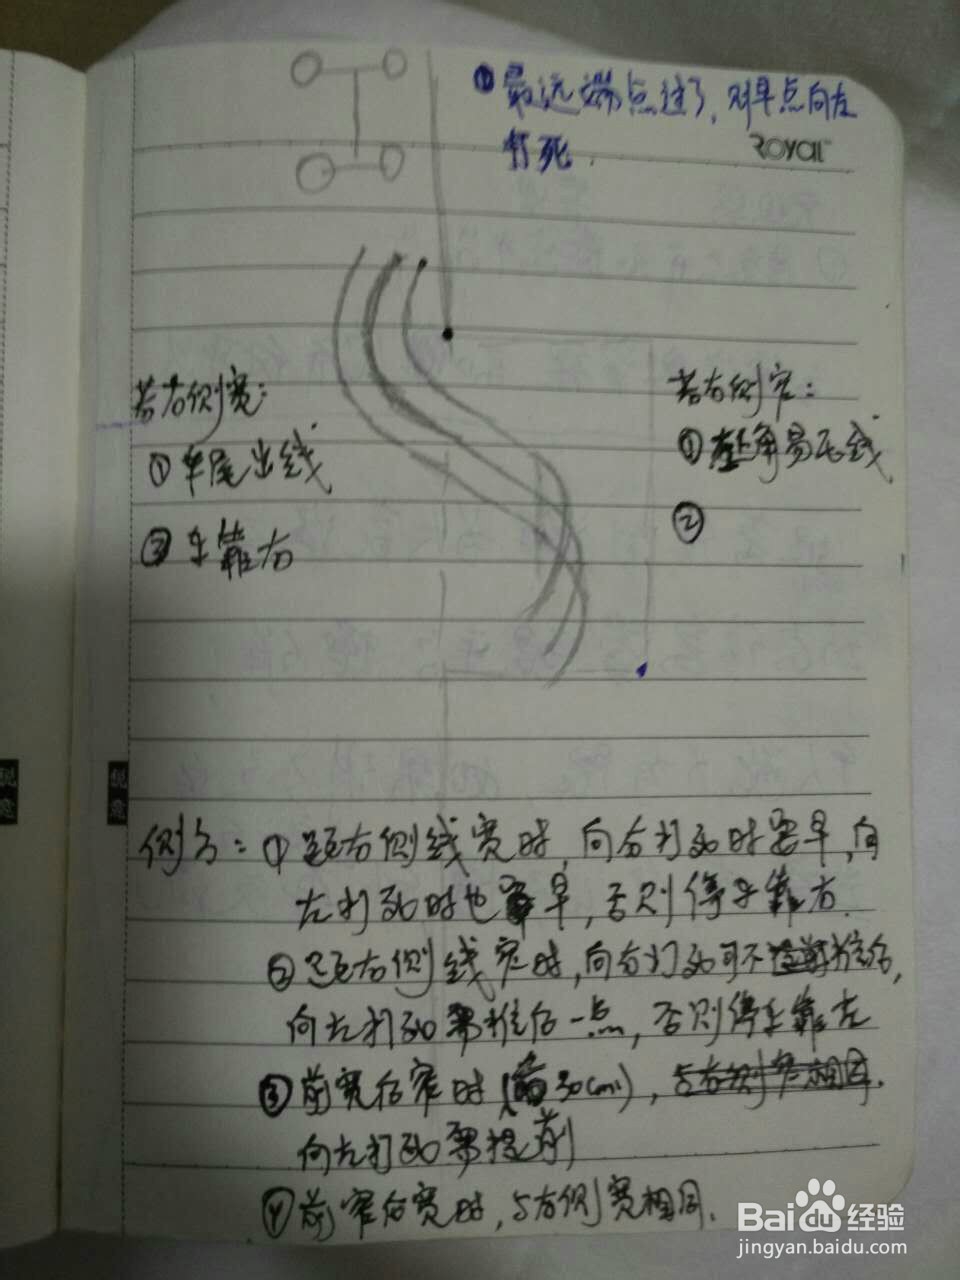 ① 最远端点过了,则早点向左
打死.
ROYAL
若右侧宽:
① 车尾出线
② 车靠右
若右侧窄:
① 左上角易压线
②
侧方: ① 距右侧线宽时,向右打死时要早,向
左打死时也要早,否则停车靠右.
② 距右侧线窄时,向右打死可不推后,
向左打死要推后一点,否则停车靠左
③ 前宽后窄时(30cm),与右侧窄相同.
向左打死要提前
④ 前窄后宽时,与右侧宽相同.
Baidu经验
jingyan.baidu.com